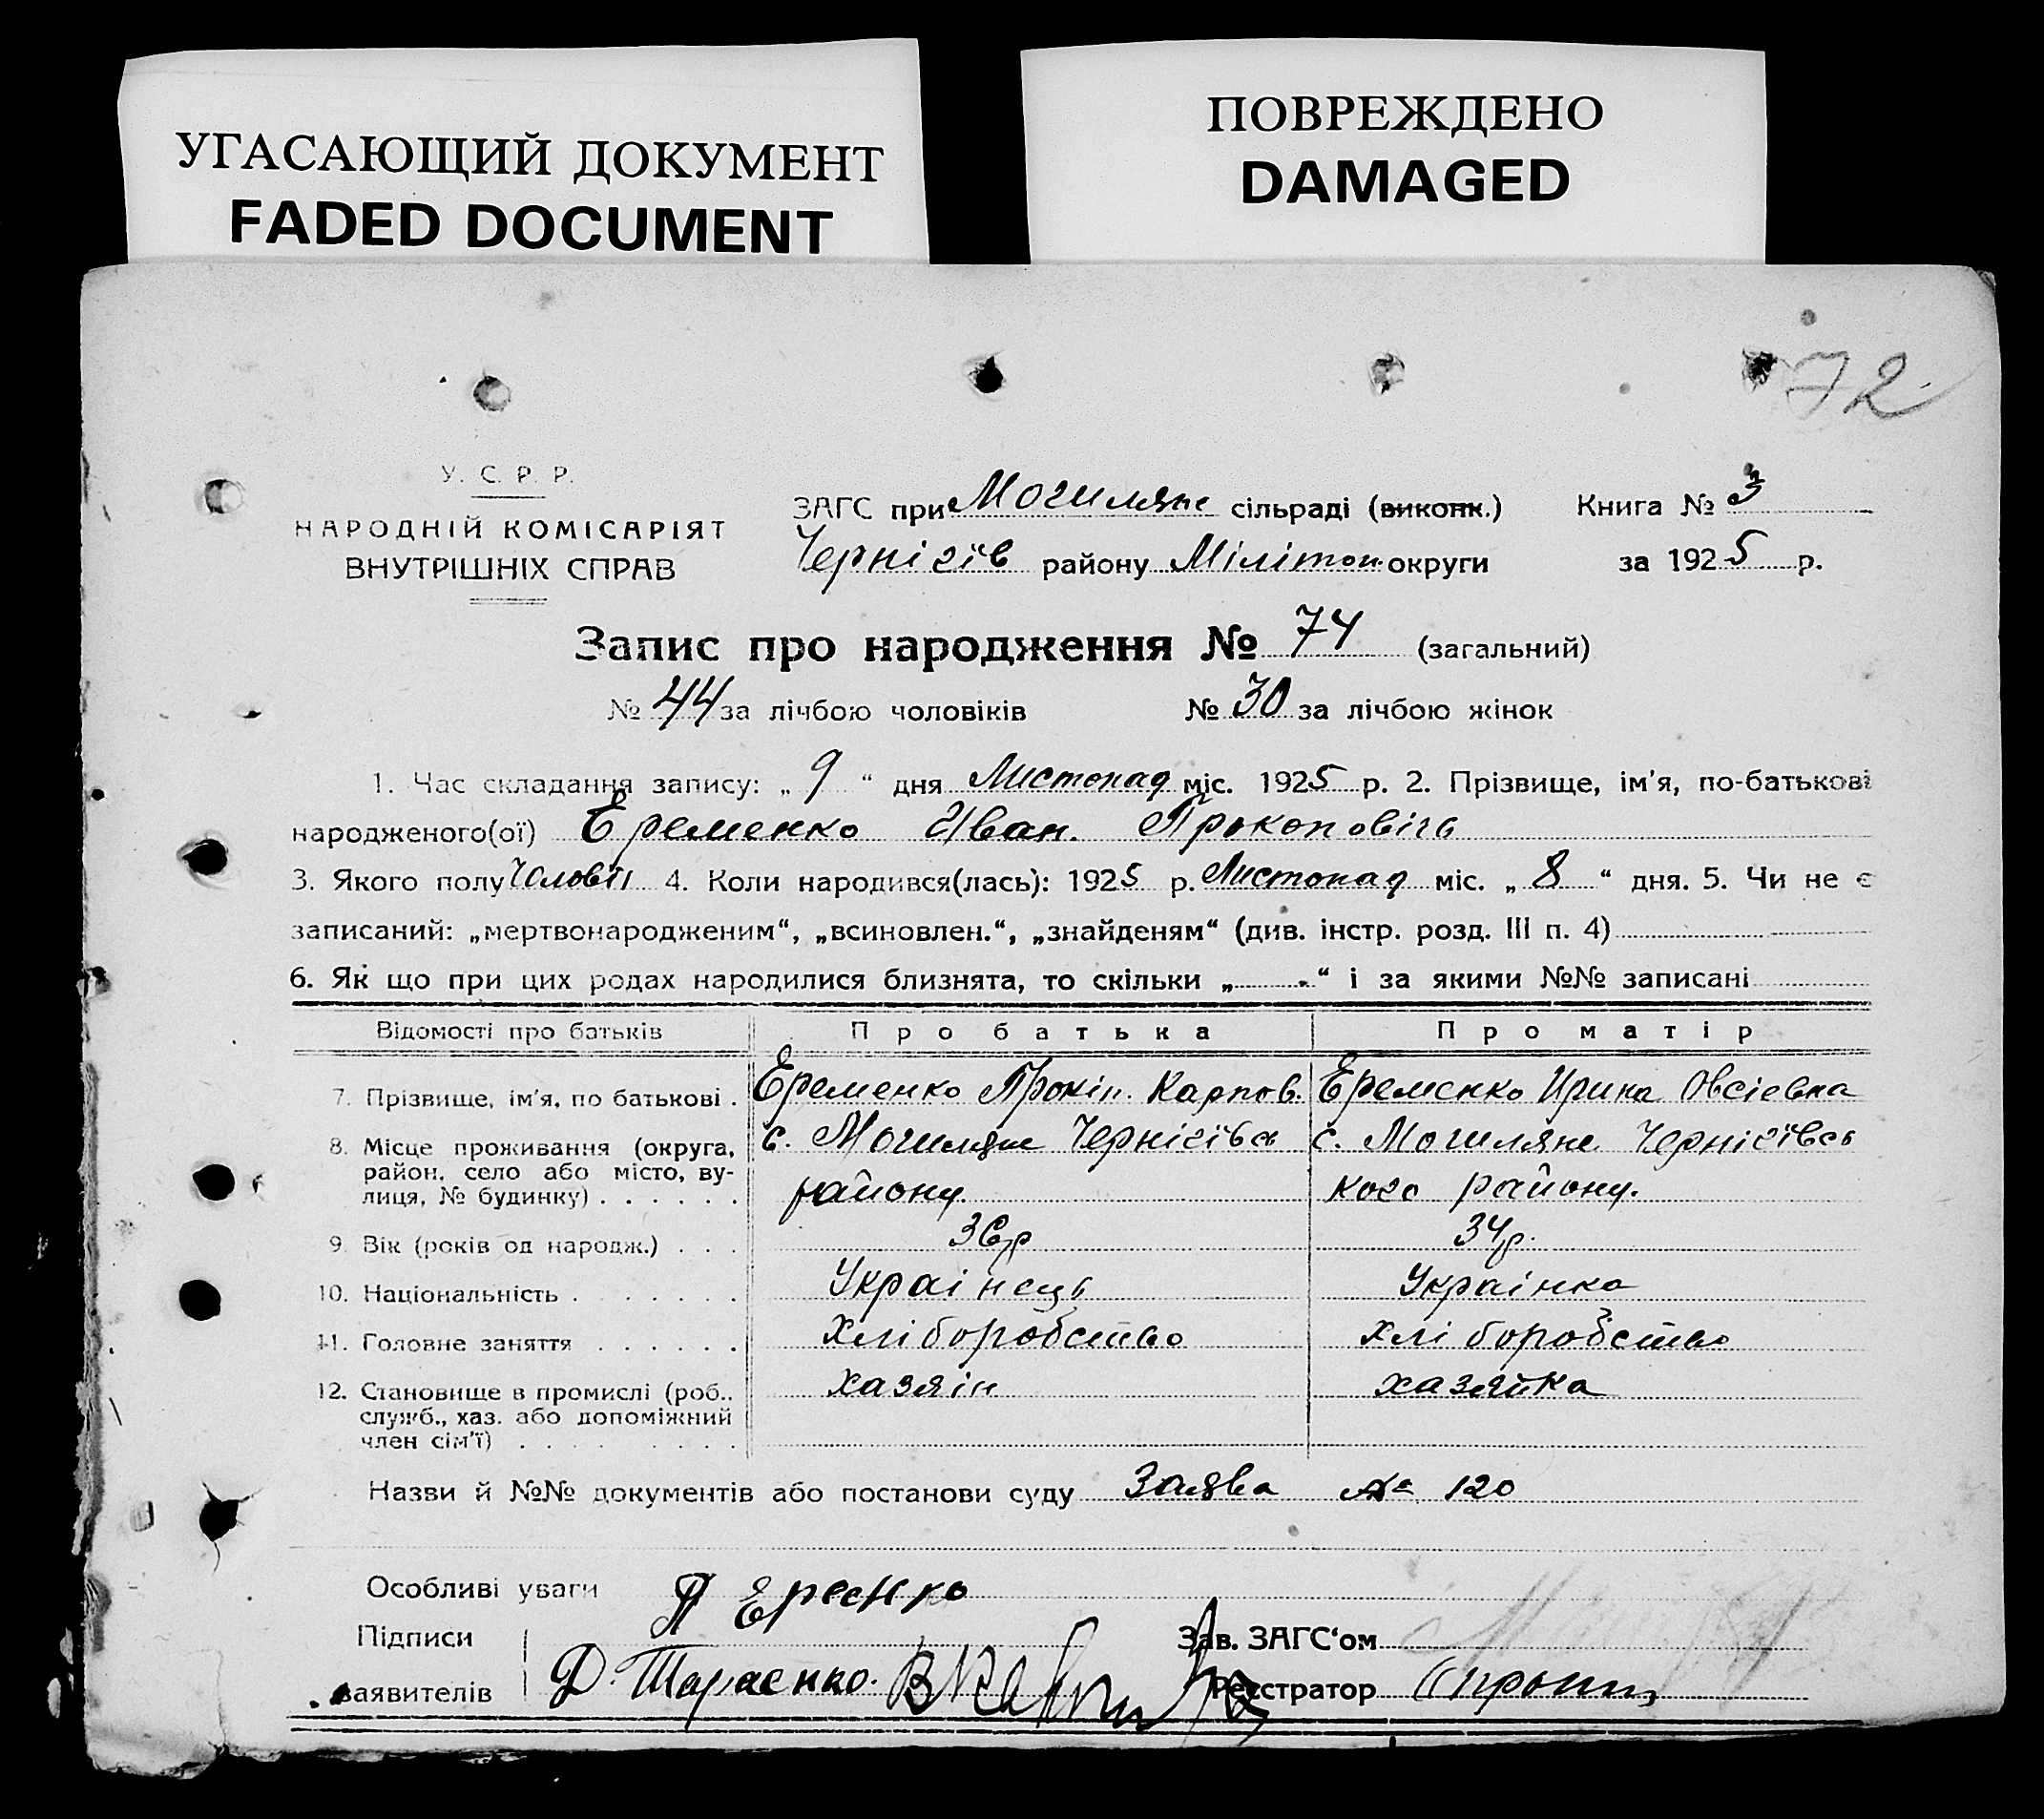 УГАСАЮЩИЙ ДОКУМЕНТ
FADED DOCUMENT
ПОВРЕЖДЕНО
DAMAGED
72
У. С. Р. Р.
НАРОДНІЙ КОМІСАРІЯТ
ВНУТРІШНІХ СПРАВ
ЗАГС при Могиляне сільраді (виконк.) Книга № 3
Чернігів району Мілітоп. округи за 1925 р.
Запис про народження № 74 (загальний)
№ 44 за лічбою чоловіків № 30 за лічбою жінок
1. Час складання запису: „ 9 “ дня Листопад міс. 1925 р. 2. Прізвище, ім’я, по-батькові
народженого(ої) Еременко Иван. Прокоповічь
3. Якого полу 4. Коли народився(лась): 1925 р. Листопад міс. „ 8 “ дня. 5. Чи не є
записаний: „мертвонародженим“, „всиновлен.“, „знайденям“ (див. інстр. розд. III п. 4)
6. Як що при цих родах народилися близнята, то скільки „ - “ і за якими №№ записані
Відомості про батьків Про батька Про матір
7. Прізвище, ім’я, по батькові . Еременко Прокіп. Карпов. Еременко Ирина Овсіевна
8. Місце проживання (округа, с. Могиляне Чернігівсь с. Могиляне Чернігівсь
район, село або місто, ву-
лиця, № будинку) . . . . . . району. кого району.
9. Вік (років од народж.) . . . 36р 34р.
10. Національність . . . . . . . Украінець Украінка
11. Головне заняття . . . . . . Хліборобство хліборобство
12. Становище в промислі (роб.. хазяін хазяйка
служб., хаз. або допоміжний
член сім’ї) . . . . . . . . .
Назви й №№ документів або постанови суду Заява № 120
Особливі уваги П Ереєнко
Підписи Зав. ЗАГС‘ом
заявителів Д. Тараєнко. Реєстратор